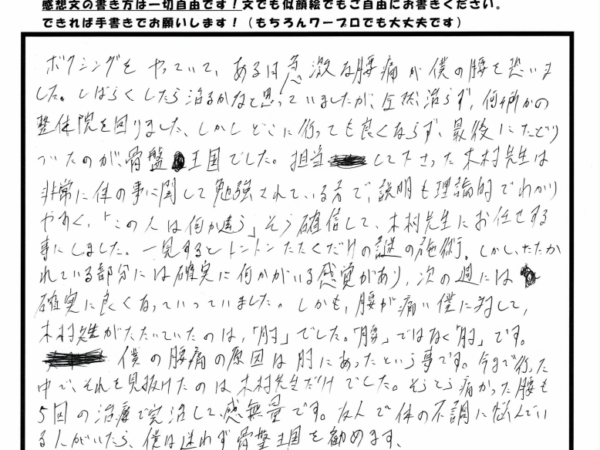 感想文の書き方は一切自由です！文でも似顔絵でもご自由にお書きください。
できれば手書きでお願いします！（もちろんワープロでも大丈夫です）
ボクシングをやっていて、ある日急激な腰痛が僕の腰を襲いま
した。しばらくしたら治るかなと思っていましたが、症状治らず、何件かの
整体院を回りました、しかしどこに行っても良くならず、最後にたどり
づいたのが、骨盤王国でした。担当して下さった木村先生は
非常に体の事に関して勉強されている方で、説明も理論的でわかり
やすく、「この人は何か違う」そう確信して、木村先生にお任せする
事にしました。一見するとトントンたたくだけの謎の施術。しかし、たたか
れている部分には確実に何かがいる感覚があり、次の週には
確実に良くなっていっていました。しかも、腰が痛い僕に対して、
木村先生がたたいていたのは、「肘」でした。「腰」ではなく「肘」です。
僕の腰痛の原因は肘にあったという事です。今まで行った
中で、それを見抜けたのは木村先生だけでした。そうとう痛かった腰も
5回の治療で完治して、感無量です。友人で体の不調に悩んでい
る人がいたら、僕は迷わず骨盤王国を勧めます、